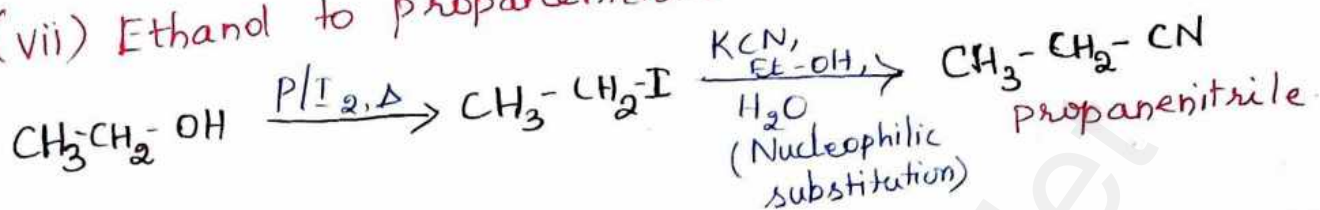 (vii) Ethanol to
CH₃-CH₂-OH P/I₂,Δ → CH₃-CH₂-I KCN, Et-OH, H₂O → CH₃-CH₂-CN
(Nucleophilic
substitution)
propanenitrile